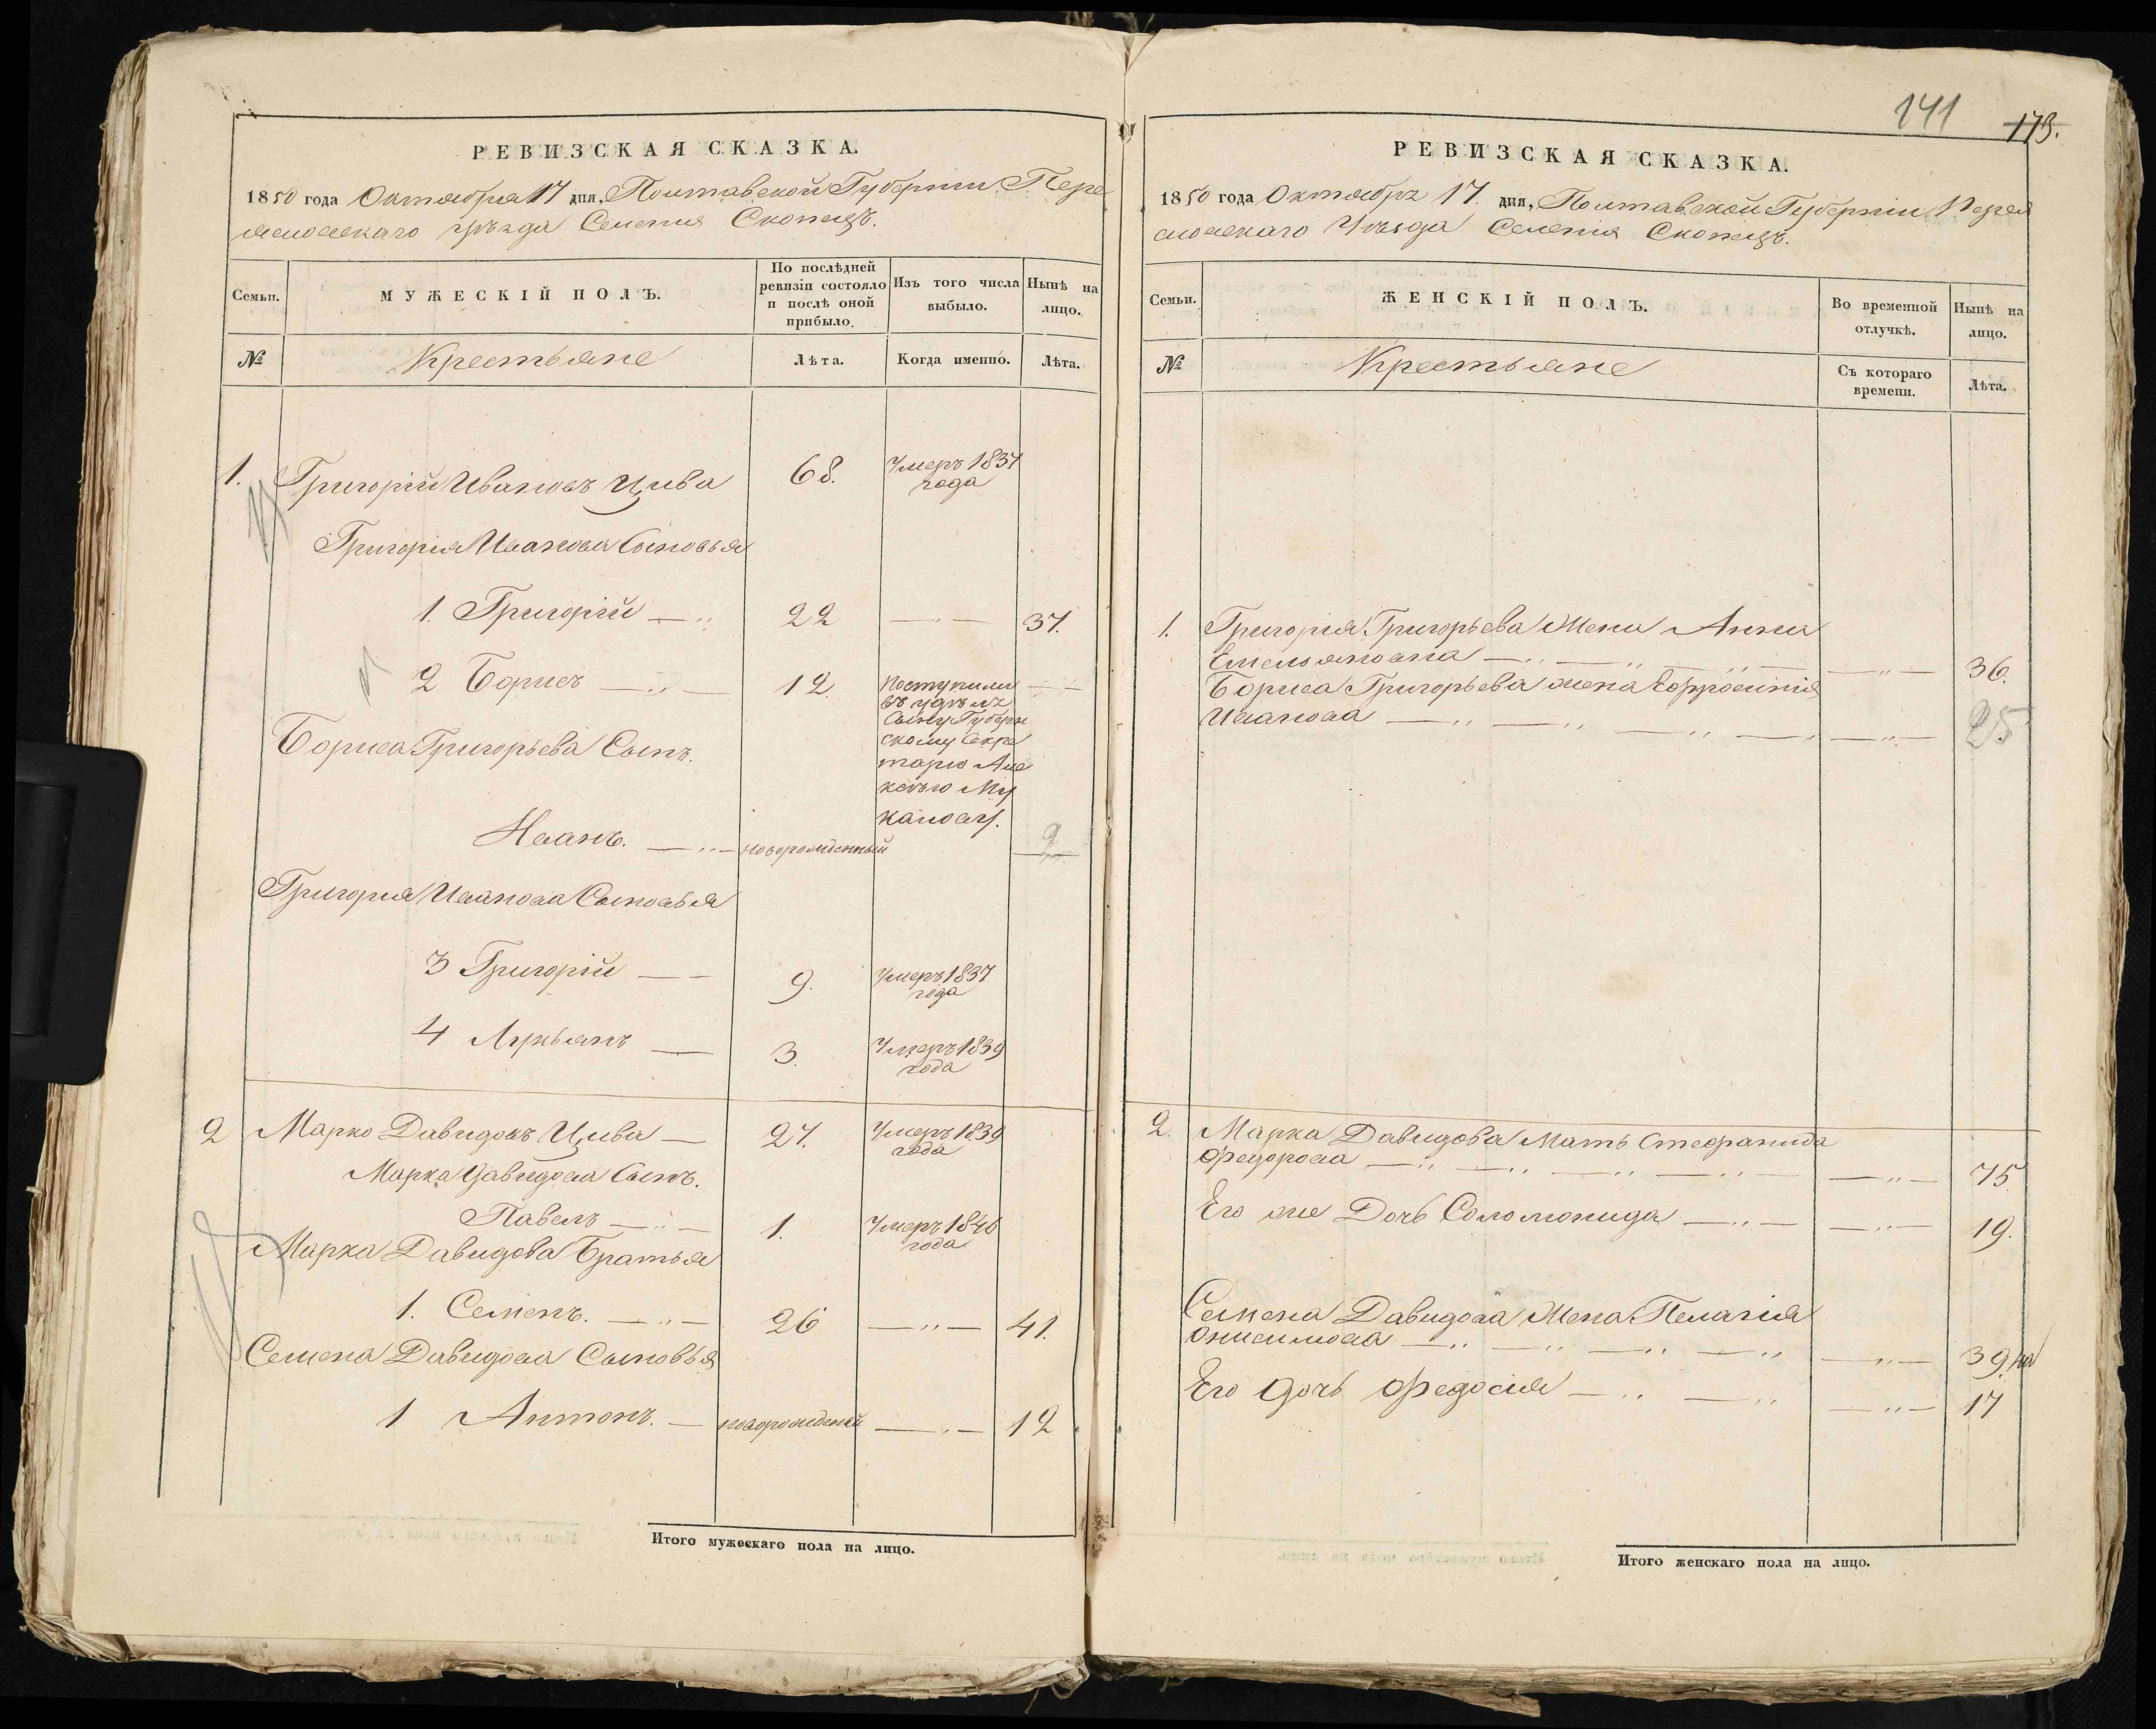 141
173.
РЕВИЗСКАЯ СКАЗКА.
1850 года Октября 17 дня, Полтавской Губернии Пере
яславскаго уѣзда Селения Скопецъ.
Семьи.
МУЖЕСКІЙ ПОЛЪ.
По послѣдней
ревизіи состояло
и послѣ оной
прибыло.
Изъ того числа
выбыло.
Нынѣ на
лицо.
№
Крестьяне
Лѣта.
Когда именно.
Лѣта.
1. Григорій Ивановъ Цива 68. Умеръ 1837
года
Григорія Иванова Сыновья
1. Григорій 22 37.
2 Борисъ 12. Поступили
въ удѣлъ
Сыну Губерн
скому Секре
тарю Але
ксѣю Му
Бориса Григорьева Сынъ.
Иванъ. новорожденный 9
Григория Иванова Сыновья
3 Григорій 9. Умеръ 1837
года
4 Лукьянъ 3. Умеръ 1839
года
2 Марко Давидовъ Цива 27. Умеръ 1839
года
Марка Давидова Сынъ.
Павелъ 1. Умеръ 1840
года
Марка Давидова Братья
1. Семенъ. 26 41.
Семена Давидова Сыновья
1 Антонъ. новорожденый 12
Итого мужескаго пола на лицо.
РЕВИЗСКАЯ СКАЗКА.
1850 года Октября 17. дня, Полтавской Губерніи Перея
славскаго Уѣзда Селенія Скопецъ.
Семьи.
ЖЕНСКІЙ ПОЛЪ.
Во временной
отлучкѣ.
Нынѣ на
лицо.
№
Крестьяне
Съ котораго
времени.
Лѣта.
1. Григория Григорьева Жена Анна
Емельяновна 36.
Бориса Григорьева жена Ефросинія
Иванова 25
2. Марка Давидова Мать Стефанида
Федорова 75
Его же Дочь Соломонида 19.
Семена Давидова Жена Пелагія
Онисимова 39
Его Дочь Федосія 17
Итого женскаго пола на лицо.